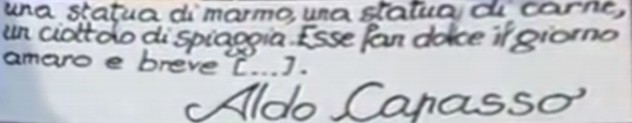 una statua di marmo, una statua di carne,
un ciottolo di spiaggia. Esse fan dolce il giorno
amaro e breve [...].
Aldo Capasso